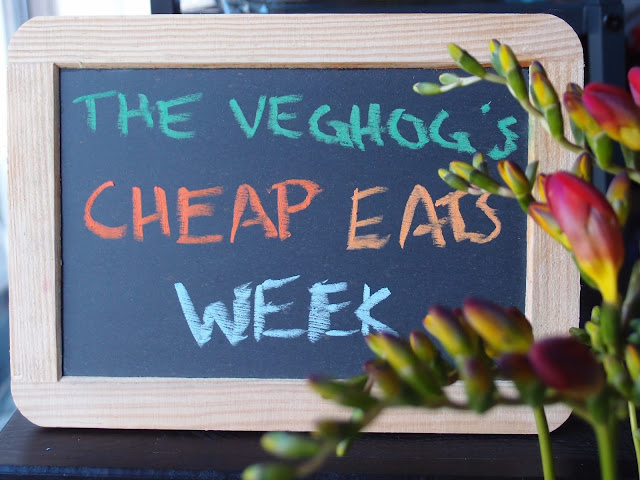 THE VEGHOG'S
CHEAP EATS
WEEK